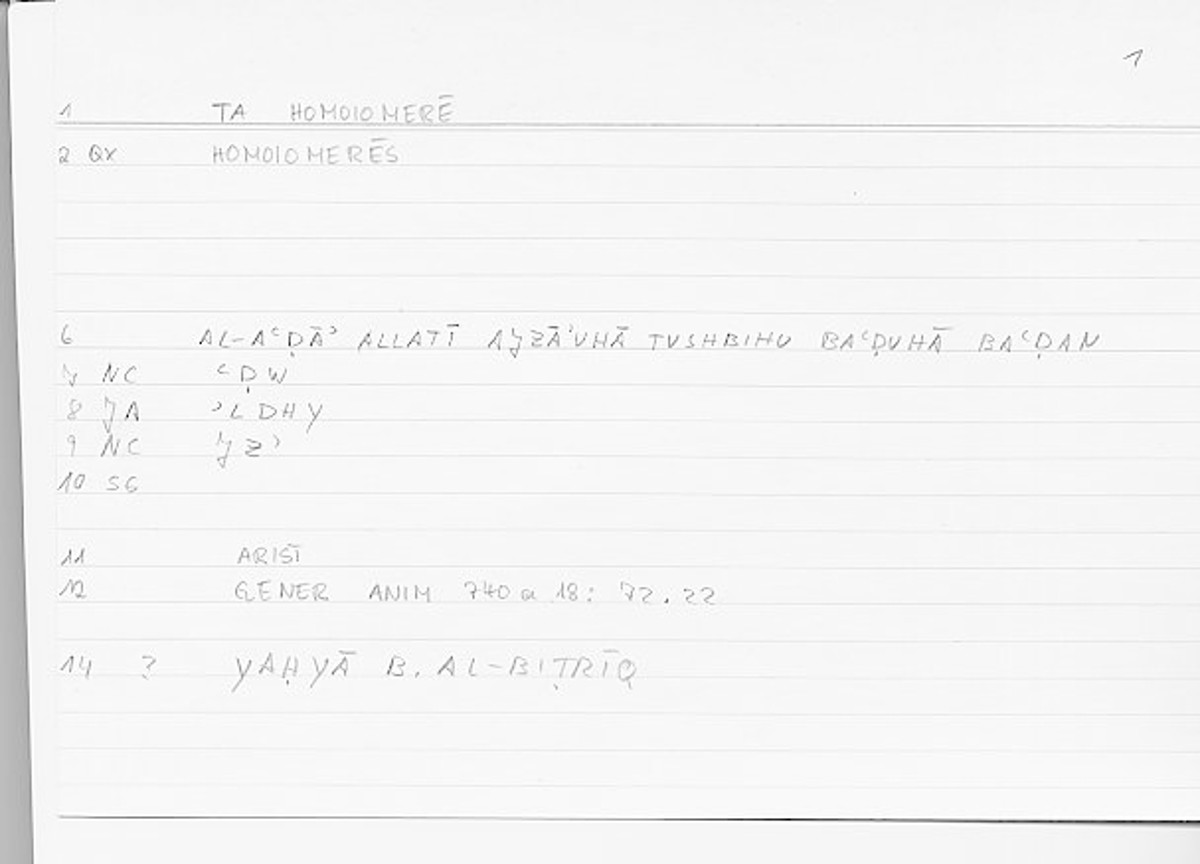 1
1 TA HOMOIOMERĒ
2 QX HOMOIOMERĒS
6 AL-AʿḌĀʾ ALLATĪ AJZĀʾUHĀ TUSHBIHU BAʿḌUHĀ BAʿḌAN
7 NC ʿḌW
8 JA ʾLDHY
9 NC JZʾ
10 SG
11 ARIST
12 GENER ANIM 740a 18: 72.22
14 ? YAḤYĀ B. AL-BIṬRĪQ